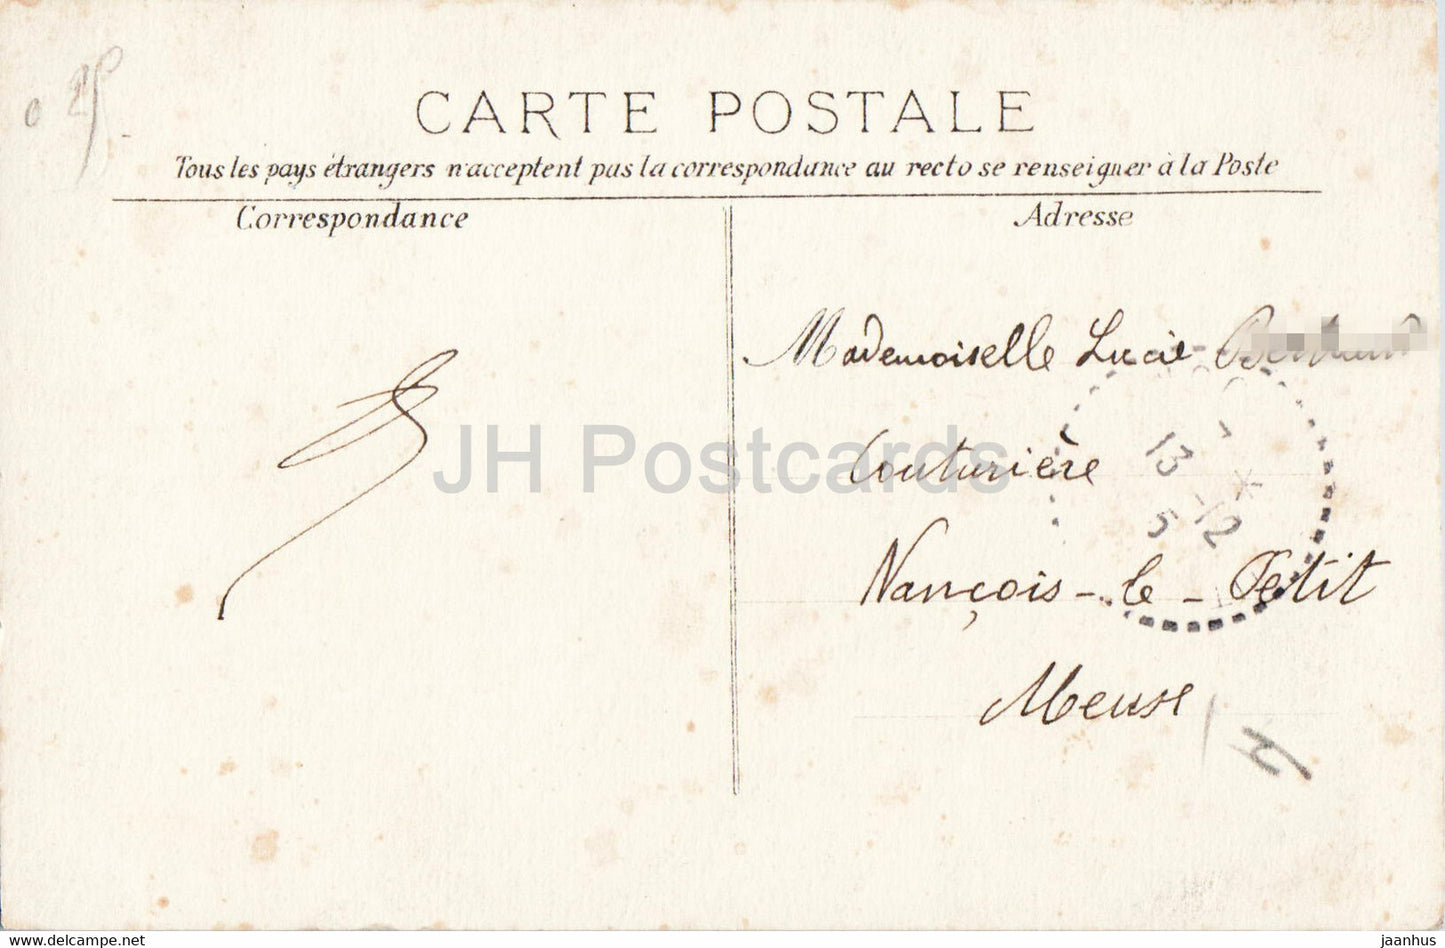 0 25
CARTE POSTALE
Tous les pays étrangers n'acceptent pas la correspondance au recto se renseigner à la Poste
Correspondance
Adresse
Mademoiselle Lucie
Couturière
JH Postcards
13 - 5
12
Nançois-le-Petit
Meuse
www.delcampe.net
jaanhus